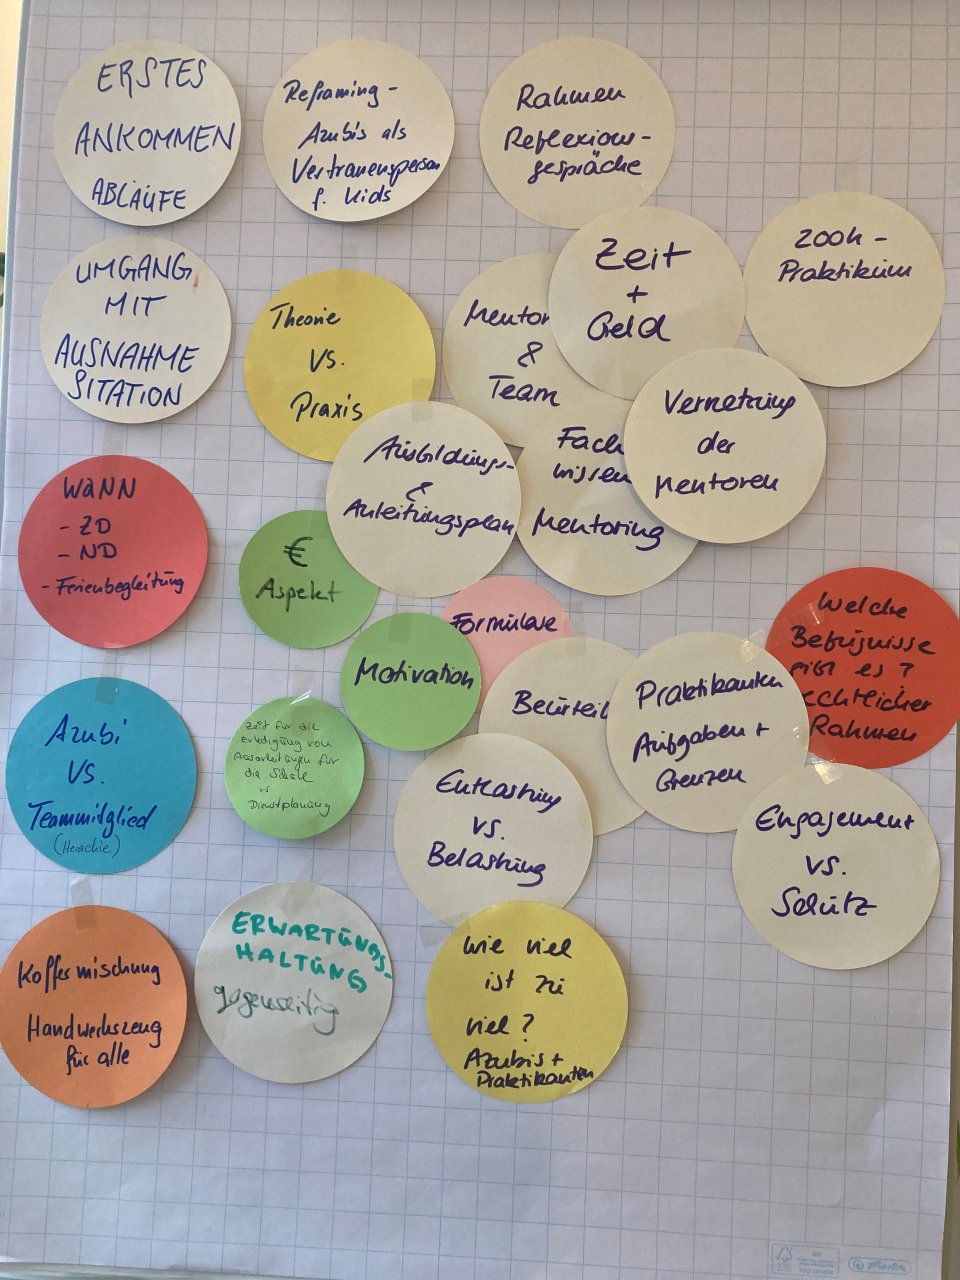 ERSTES
ANKOMMEN
ABLÄUFE
Reframing -
Azubis als
Vertrauensperson
f. Kids
Rahmen
Reflexions-
gespräche
UMGANG
MIT
AUSNAHME
SITATION
Theorie
vs.
Praxis
Mentor
&
Team
Zeit
+
Geld
200h -
Praktikum
Ausbildungs-
&
Anleitungsplan
Fach
wissen
Mentoring
Vernetzung
der
Mentoren
WANN
- ZD
- ND
- Ferienbegleitung
€
Aspekt
Formulare
Motivation
Beurteil
Praktikanten
Aufgaben +
Grenzen
Welche
Befugnisse
gibt es?
rechtlicher
Rahmen
Azubi
vs.
Teammitglied
(Herachie)
Zeit für die
Erledigung von
Ausarbeitungen für
die Schule
vs
Dienstplanung
Entlastung
vs.
Belastung
Engagement
vs.
Schutz
Koffermischung
Handwerkszeug
für alle
ERWARTUNGS-
HALTUNG
gegenseitig
wie viel
ist zu
viel?
Azubis +
Praktikanten
FSC